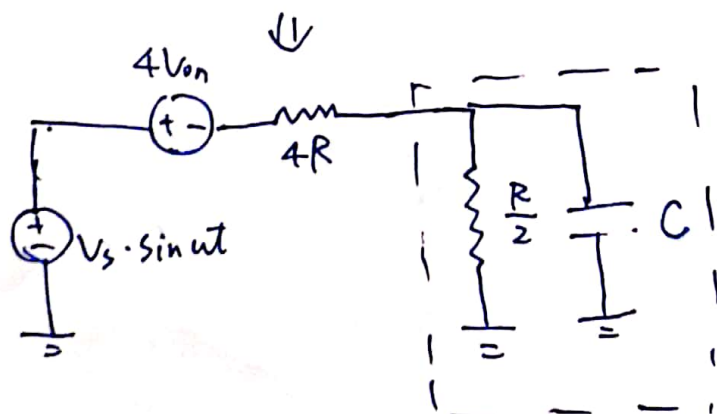 ⇓
4Von
+ -
4R
+
-
Vs · sin ωt
R/2
C